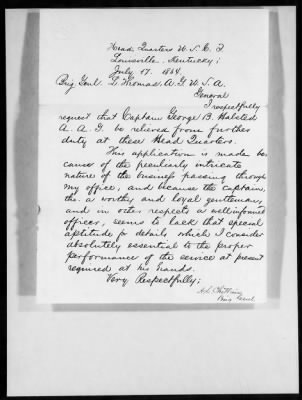 Head Quarters U.S.C.T.
Louisville, Kentucky;
July 17. 1864.
Brig Genl L Thomas. A.G. U.S.A.
General
I respectfully
request that Captain George B. Halsted
A. A. G. be relieved from further
duty at these Head Quarters.
This application is made be-
cause of the peculiarly intricate
nature of the business passing through
my office, and because the Captain,
tho. a worthy and loyal gentleman,
and in other respects a well informed
officer, seems to lack that special
aptitude for details which I consider
absolutely essential to the proper
performance of the service at present
required at his hands.
Very Respectfully;
Brig Genl